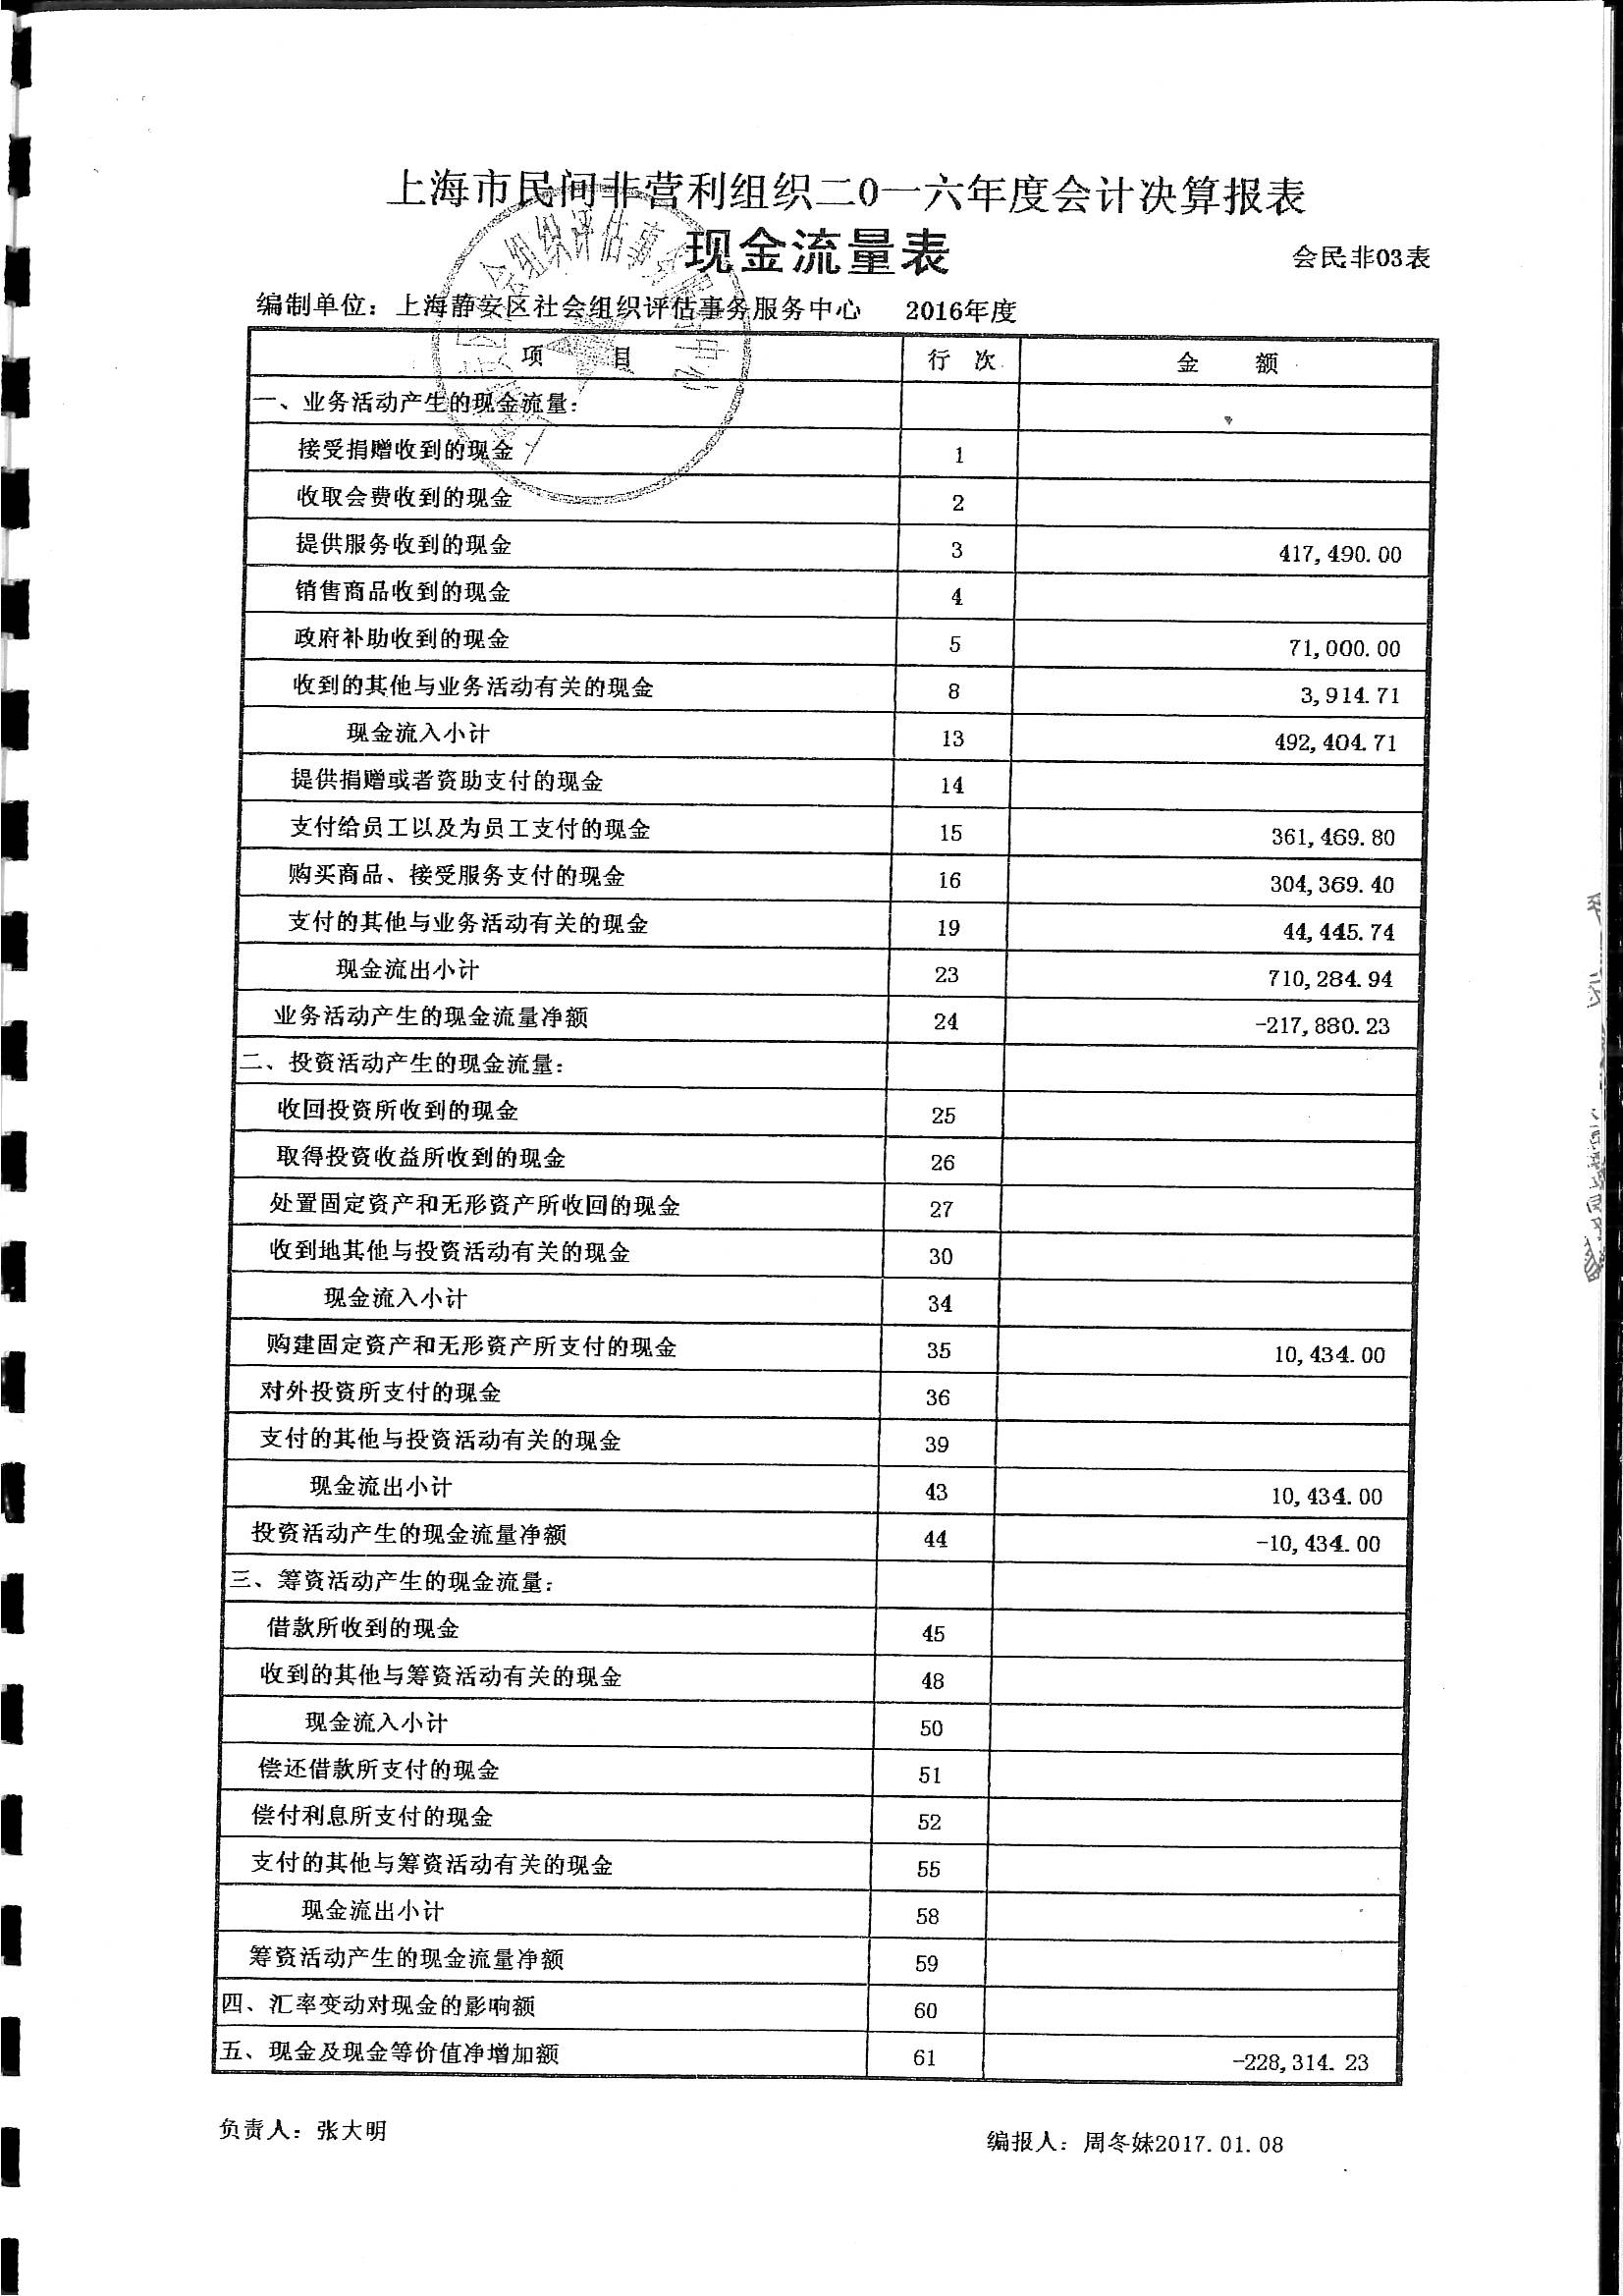 上海市民间非营利组织二0一六年度会计决算报表
现金流量表
会民非03表
编制单位：上海静安区社会组织评估事务服务中心 2016年度
项 目 行 次 金 额
一、业务活动产生的现金流量：
接受捐赠收到的现金 1
收取会费收到的现金 2
提供服务收到的现金 3 417,490.00
销售商品收到的现金 4
政府补助收到的现金 5 71,000.00
收到的其他与业务活动有关的现金 8 3,914.71
现金流入小计 13 492,404.71
提供捐赠或者资助支付的现金 14
支付给员工以及为员工支付的现金 15 361,469.80
购买商品、接受服务支付的现金 16 304,369.40
支付的其他与业务活动有关的现金 19 44,445.74
现金流出小计 23 710,284.94
业务活动产生的现金流量净额 24 -217,880.23
二、投资活动产生的现金流量：
收回投资所收到的现金 25
取得投资收益所收到的现金 26
处置固定资产和无形资产所收回的现金 27
收到地其他与投资活动有关的现金 30
现金流入小计 34
购建固定资产和无形资产所支付的现金 35 10,434.00
对外投资所支付的现金 36
支付的其他与投资活动有关的现金 39
现金流出小计 43 10,434.00
投资活动产生的现金流量净额 44 -10,434.00
三、筹资活动产生的现金流量：
借款所收到的现金 45
收到的其他与筹资活动有关的现金 48
现金流入小计 50
偿还借款所支付的现金 51
偿付利息所支付的现金 52
支付的其他与筹资活动有关的现金 55
现金流出小计 58
筹资活动产生的现金流量净额 59
四、汇率变动对现金的影响额 60
五、现金及现金等价值净增加额 61 -228,314.23
负责人：张大明
编报人：周冬妹2017.01.08